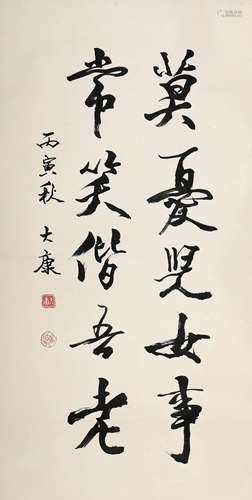 莫憂児女事
常笑偕吾老
丙寅秋 大康